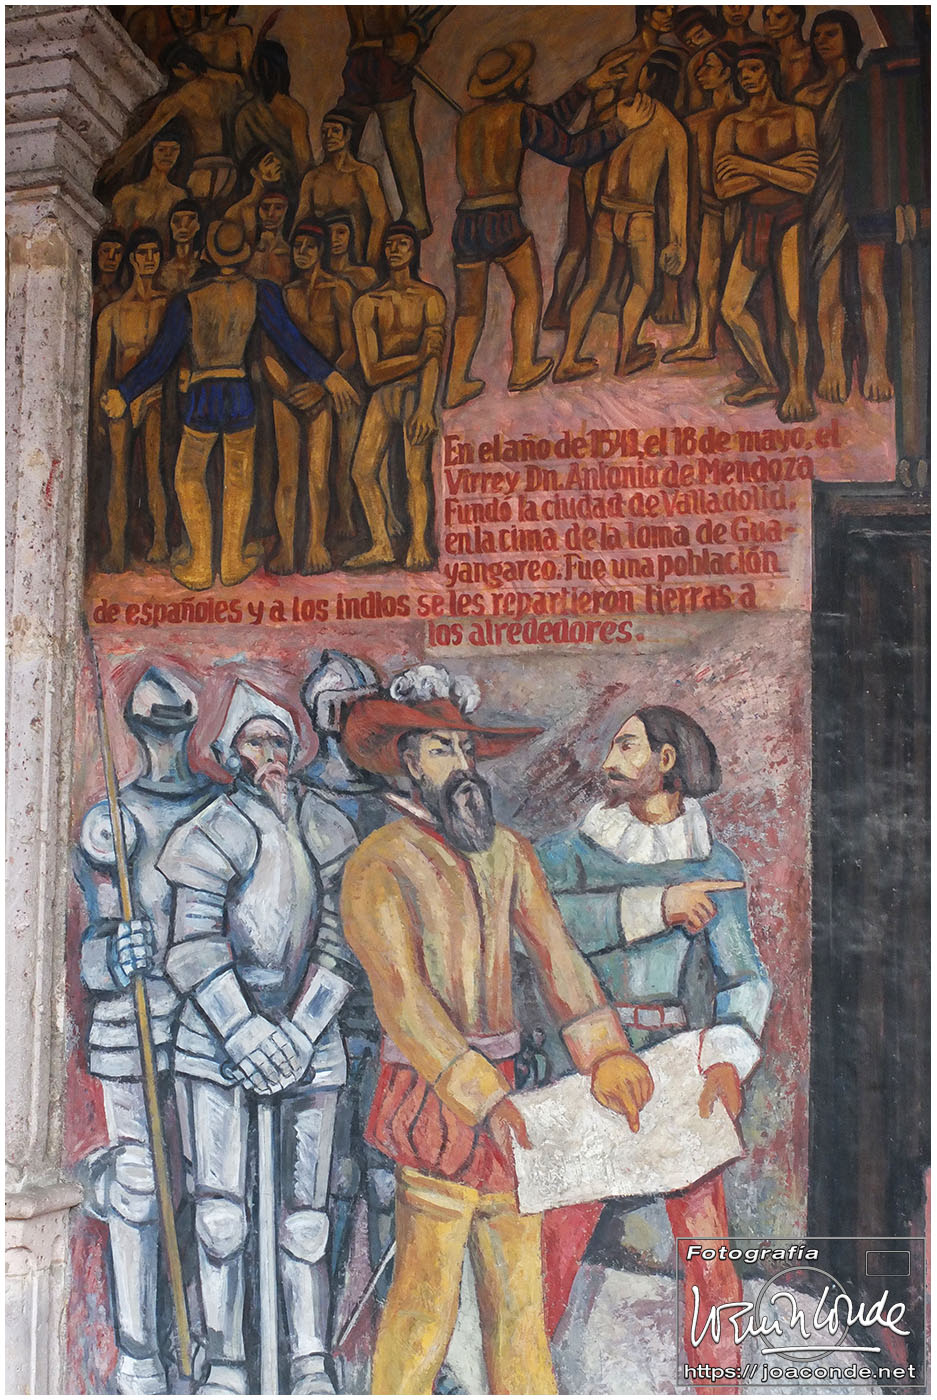 En el año de 1541, el 18 de mayo, el
Virrey Dn. Antonio de Mendoza
Fundó la ciudad de Valladolid,
en la cima de la loma de Gua-
yangareo. Fue una población
de españoles y a los indios se les repartieron tierras a
los alrededores.
Fotografía
https://joaconde.net